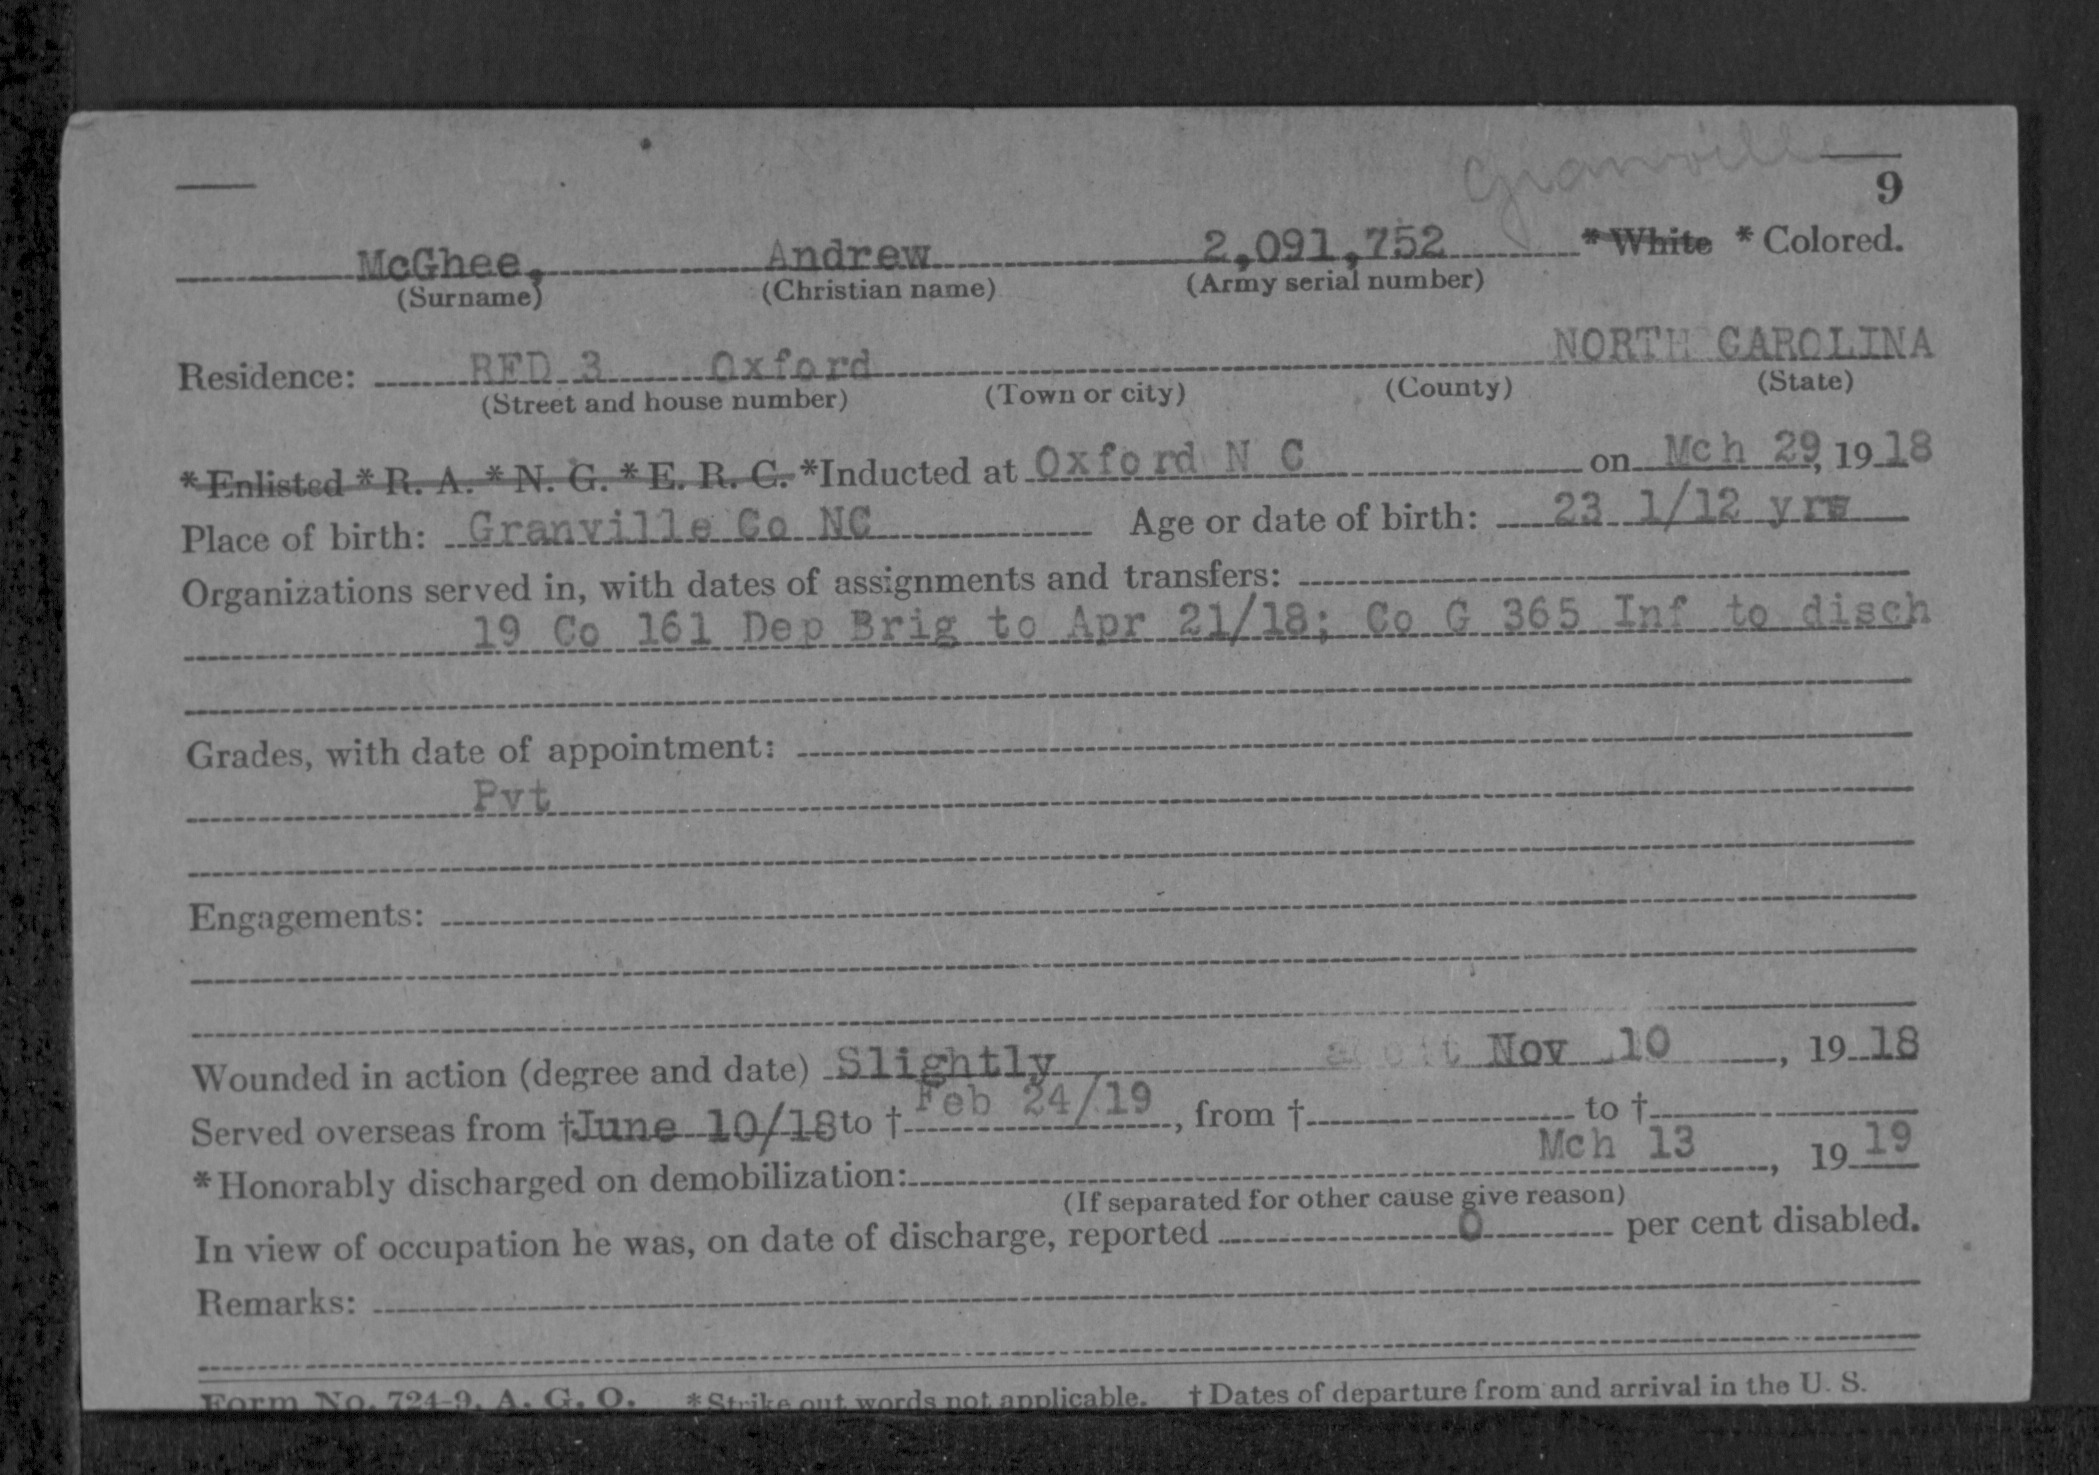 Granville
9
McGhee, Andrew 2,091,752 *White * Colored.
(Surname) (Christian name) (Army serial number)
Residence: RFD 3 Oxford NORTH CAROLINA
(Street and house number) (Town or city) (County) (State)
*Enlisted *R. A. *N. G. *E. R. C. *Inducted at Oxford N C on Mch 29, 1918
Place of birth: Granville Co NC Age or date of birth: 23 1/12 yrs
Organizations served in, with dates of assignments and transfers:
19 Co 161 Dep Brig to Apr 21/18; Co G 365 Inf to disch
Grades, with date of appointment:
Pvt
Engagements:
Wounded in action (degree and date) Slightly about Nov 10, 1918
Served overseas from †June 10/18 to † Feb 24/19, from † to †
*Honorably discharged on demobilization: Mch 13, 1919
(If separated for other cause give reason)
In view of occupation he was, on date of discharge, reported 0 per cent disabled.
Remarks:
Form No. 724-9, A. G. O. *Strike out words not applicable. † Dates of departure from and arrival in the U. S.